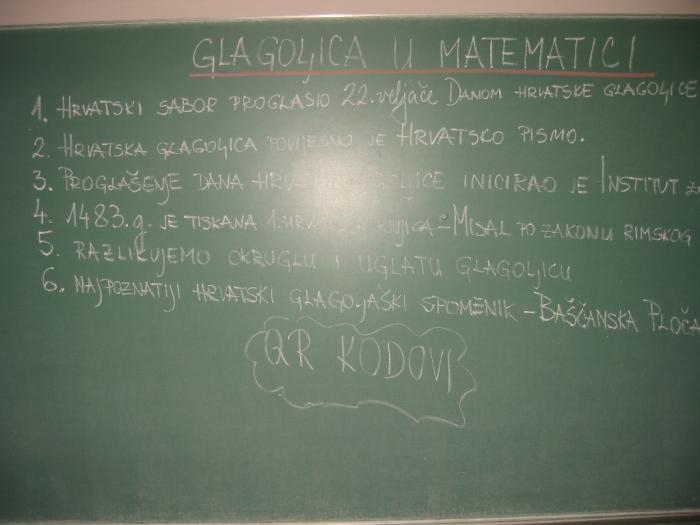 GLAGOLJICA U MATEMATICI
1. HRVATSKI SABOR PROGLASIO 22. veljače DANOM HRVATSKE GLAGOLJICE
2. HRVATSKA GLAGOLJICA POVIJESNO JE HRVATSKO PISMO.
3. PROGLAŠENJE DANA INICIRAO JE INSTITUT
4. 1483.g. JE TISKANA - MISAL PO ZAKONU RIMSKOG
5. RAZLIKUJEMO OKRUGLU I UGLATU GLAGOLJICU
6. NAJPOZNATIJI HRVATSKI GLAGOLJAŠKI SPOMENIK - BAŠČANSKA PLOČA
QR KODOVI